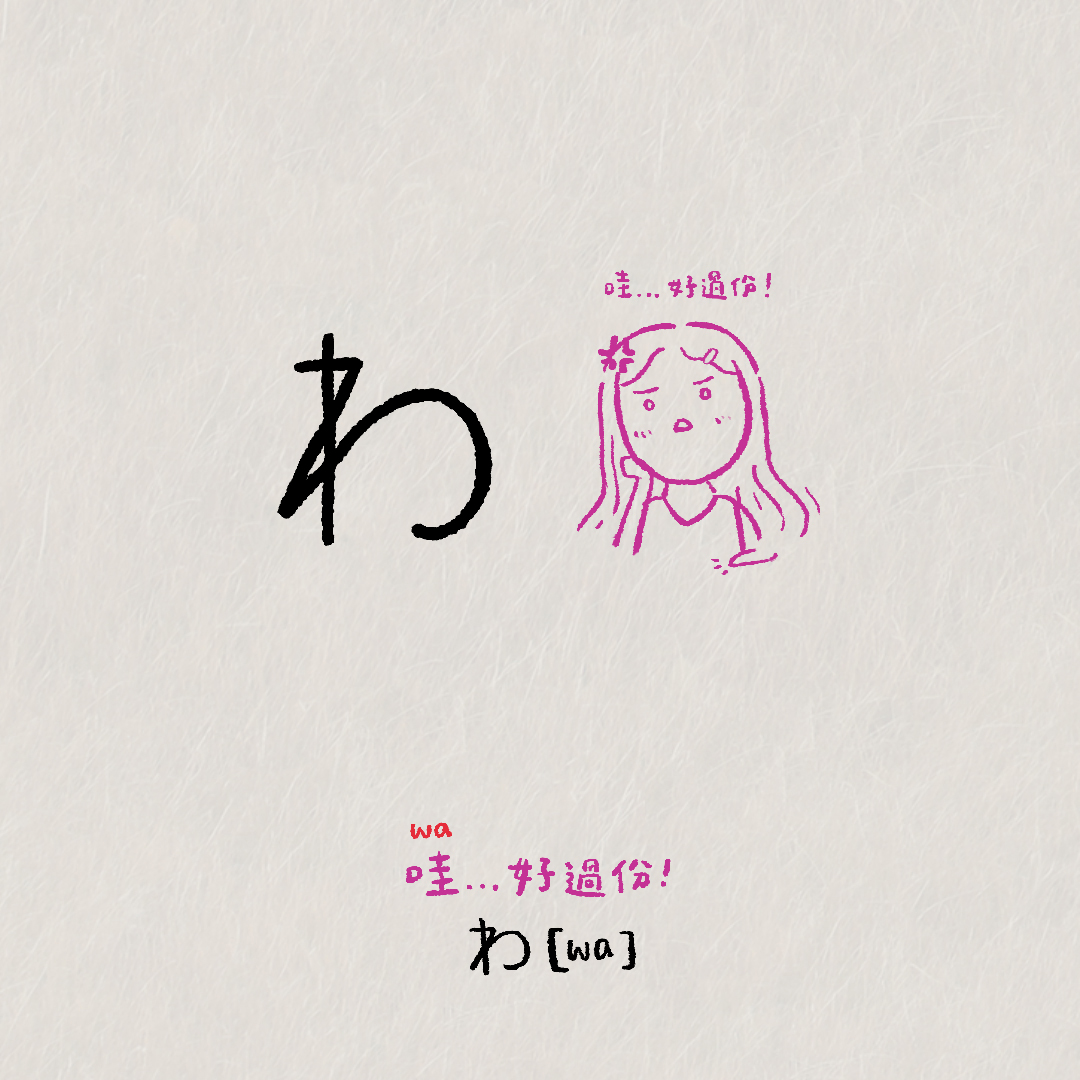 わ
哇...好過份!
wa
哇...好過份!
わ [wa]